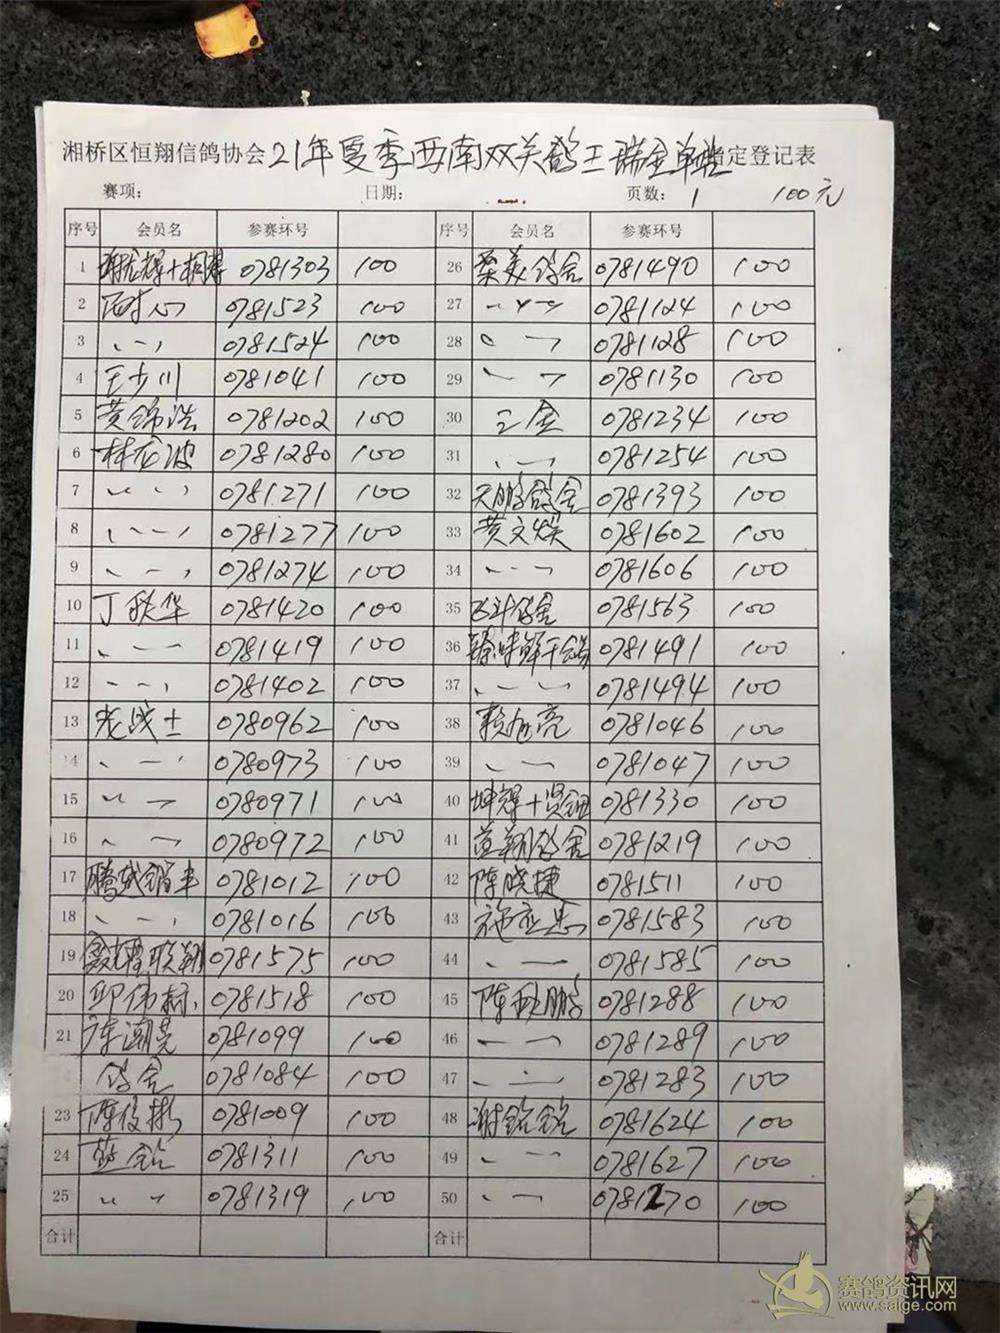 湘桥区恒翔信鸽协会21年夏季西南双关鸽王瑞金单指定登记表
赛项： 日期： 页数：1 100元
序号 会员名 参赛环号 序号 会员名 参赛环号
1 0781303 100 26 桑美鸽舍 0781490 100
2 0781523 100 27 〃 0781124 100
3 〃 0781524 100 28 〃 0781128 100
4 王少川 0781041 100 29 〃 0781130 100
5 黄锦浩 0781202 100 30 三金 0781234 100
6 林宏波 0781280 100 31 〃 0781254 100
7 〃 0781271 100 32 天鹏鸽舍 0781393 100
8 〃 0781277 100 33 黄文焕 0781602 100
9 〃 0781274 100 34 〃 0781606 100
10 丁跃华 0781420 100 35 飞斗鸽舍 0781563 100
11 〃 0781419 100 36 臻味鲜干鸽 0781491 100
12 〃 0781402 100 37 〃 0781494 100
13 老战士 0780962 100 38 赖旭亮 0781046 100
14 〃 0780973 100 39 〃 0781047 100
15 〃 0780971 100 40 坤辉+贤钿 0781330 100
16 〃 0780972 100 41 萱翔鸽舍 0781219 100
17 0781012 100 42 陈晓捷 0781511 100
18 〃 0781016 100 43 施应忠 0781583 100
19 联翔 0781575 100 44 〃 0781585 100
20 邱伟 0781518 100 45 陈秋鹏 0781288 100
21 0781099 100 46 〃 0781289 100
鸽舍 0781084 100 47 〃 0781283 100
23 陈俊彬 0781009 100 48 谢铭铭 0781624 100
24 0781311 100 49 〃 0781627 100
25 〃 0781319 100 50 〃 0781270 100
合计 合计
赛鸽资讯网
www.saige.com